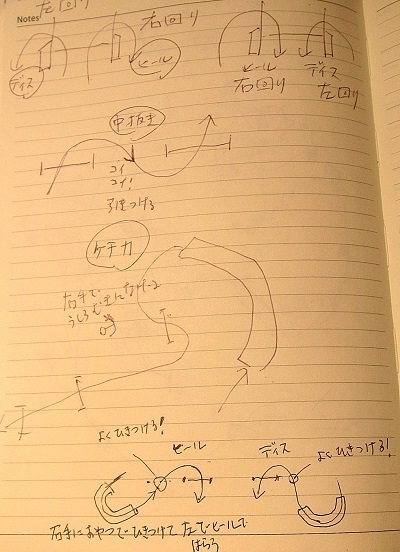 Notes
左回り
右回り
ディス
ヒール
ヒール
右回り
ディス
左回り
中抜き
コイ
コイ!
引きつける
ケチカ
右手で
うしろむきに
よくひきつける!
ヒール
ディス
よくひきつける!
右手におやつでひきつけて左でヒールで
はらう